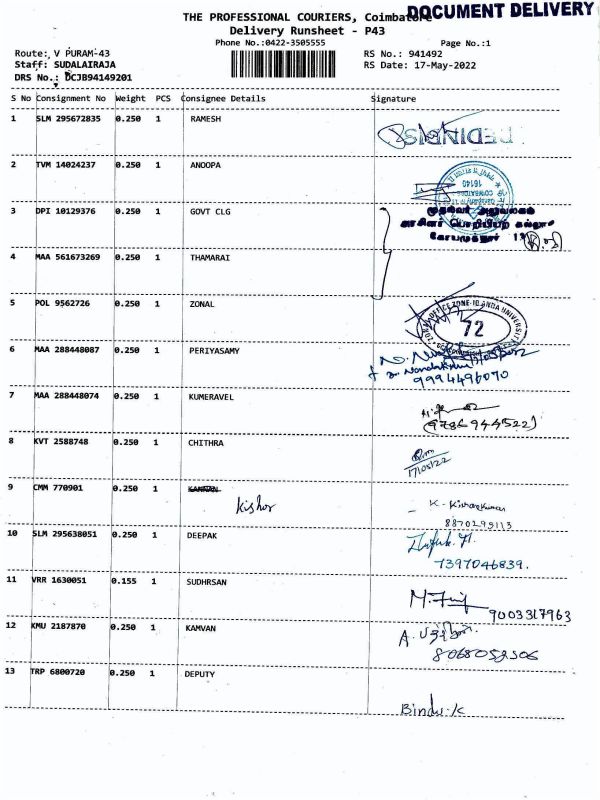 DOCUMENT DELIVERY
THE PROFESSIONAL COURIERS, Coimbatore
Delivery Runsheet - P43
Phone No.:0422-3505555 Page No.:1
Route: V PURAM-43 RS No.: 941492
Staff: SUDALAIRAJA RS Date: 17-May-2022
DRS No.: DCJB94149201
S No Consignment No Weight PCS Consignee Details Signature
1 SLM 295672835 0.250 1 RAMESH
2 TVM 14024237 0.250 1 ANOOPA
16140
3 DPI 10129376 0.250 1 GOVT CLG
முதல்வர் அலுவலகம்
அரசினர் பொறியியற் கல்லூரி
கோயமுத்தூர் 13
4 MAA 561673269 0.250 1 THAMARAI
5 POL 9562726 0.250 1 ZONAL
72
6 MAA 288448087 0.250 1 PERIYASAMY
9994496070
7 MAA 288448074 0.250 1 KUMERAVEL
(9786944522)
8 KVT 2588748 0.250 1 CHITHRA
17/05/22
9 CMM 770901 0.250 1 KAMVAN
Kishor
K - Kishorkumar
8870295113
10 SLM 295638051 0.250 1 DEEPAK
7397046839.
11 VRR 1630051 0.155 1 SUDHRSAN
9003317963
12 KMU 2187870 0.250 1 KAMVAN
8068052506
13 TRP 6800720 0.250 1 DEPUTY
Bindu-K